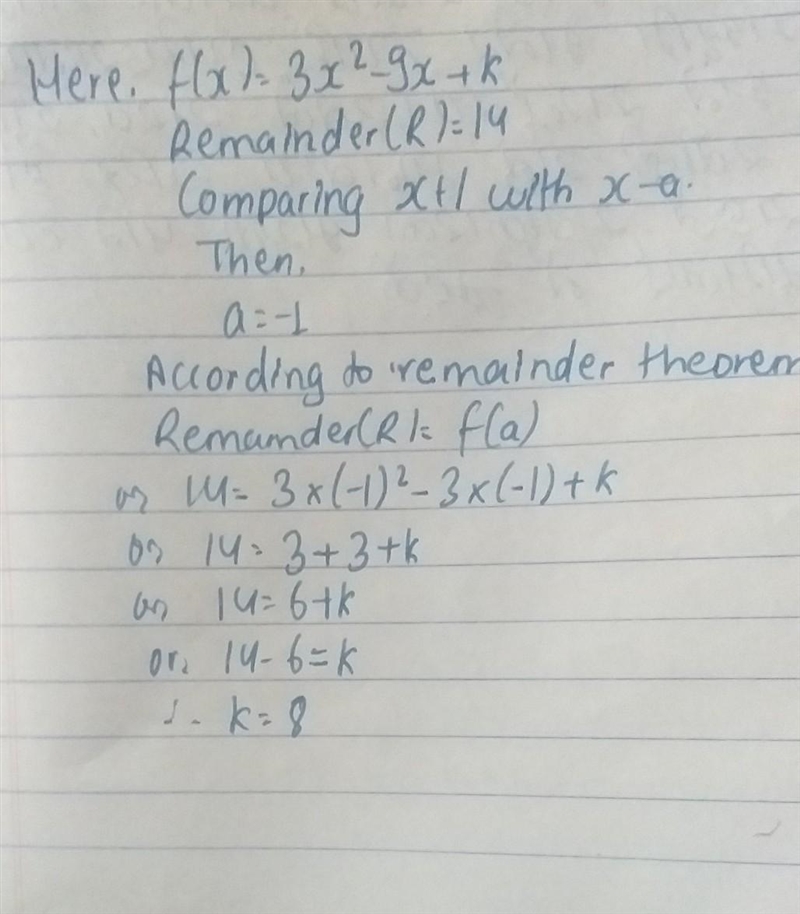 Here. f(x)= 3x²-9x+k
Remainder(R)=14
Comparing x+1 with x-a.
Then,
a=-1
According to remainder theorem
Remainder(R)= f(a)
or 14= 3×(-1)²-3×(-1)+k
or 14= 3+3+k
or 14=6+k
or, 14-6=k
∴ k=8